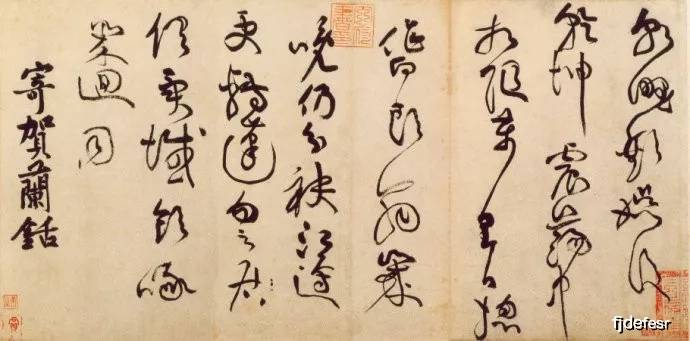 朝野歡娛後
乾坤震蕩中
相隨萬里日總
作白頭翁歲
晚仍分袂江邊
更轉蓬勿云君
俱異域飲啄
幾迴同
寄賀蘭銛
fjdefesr